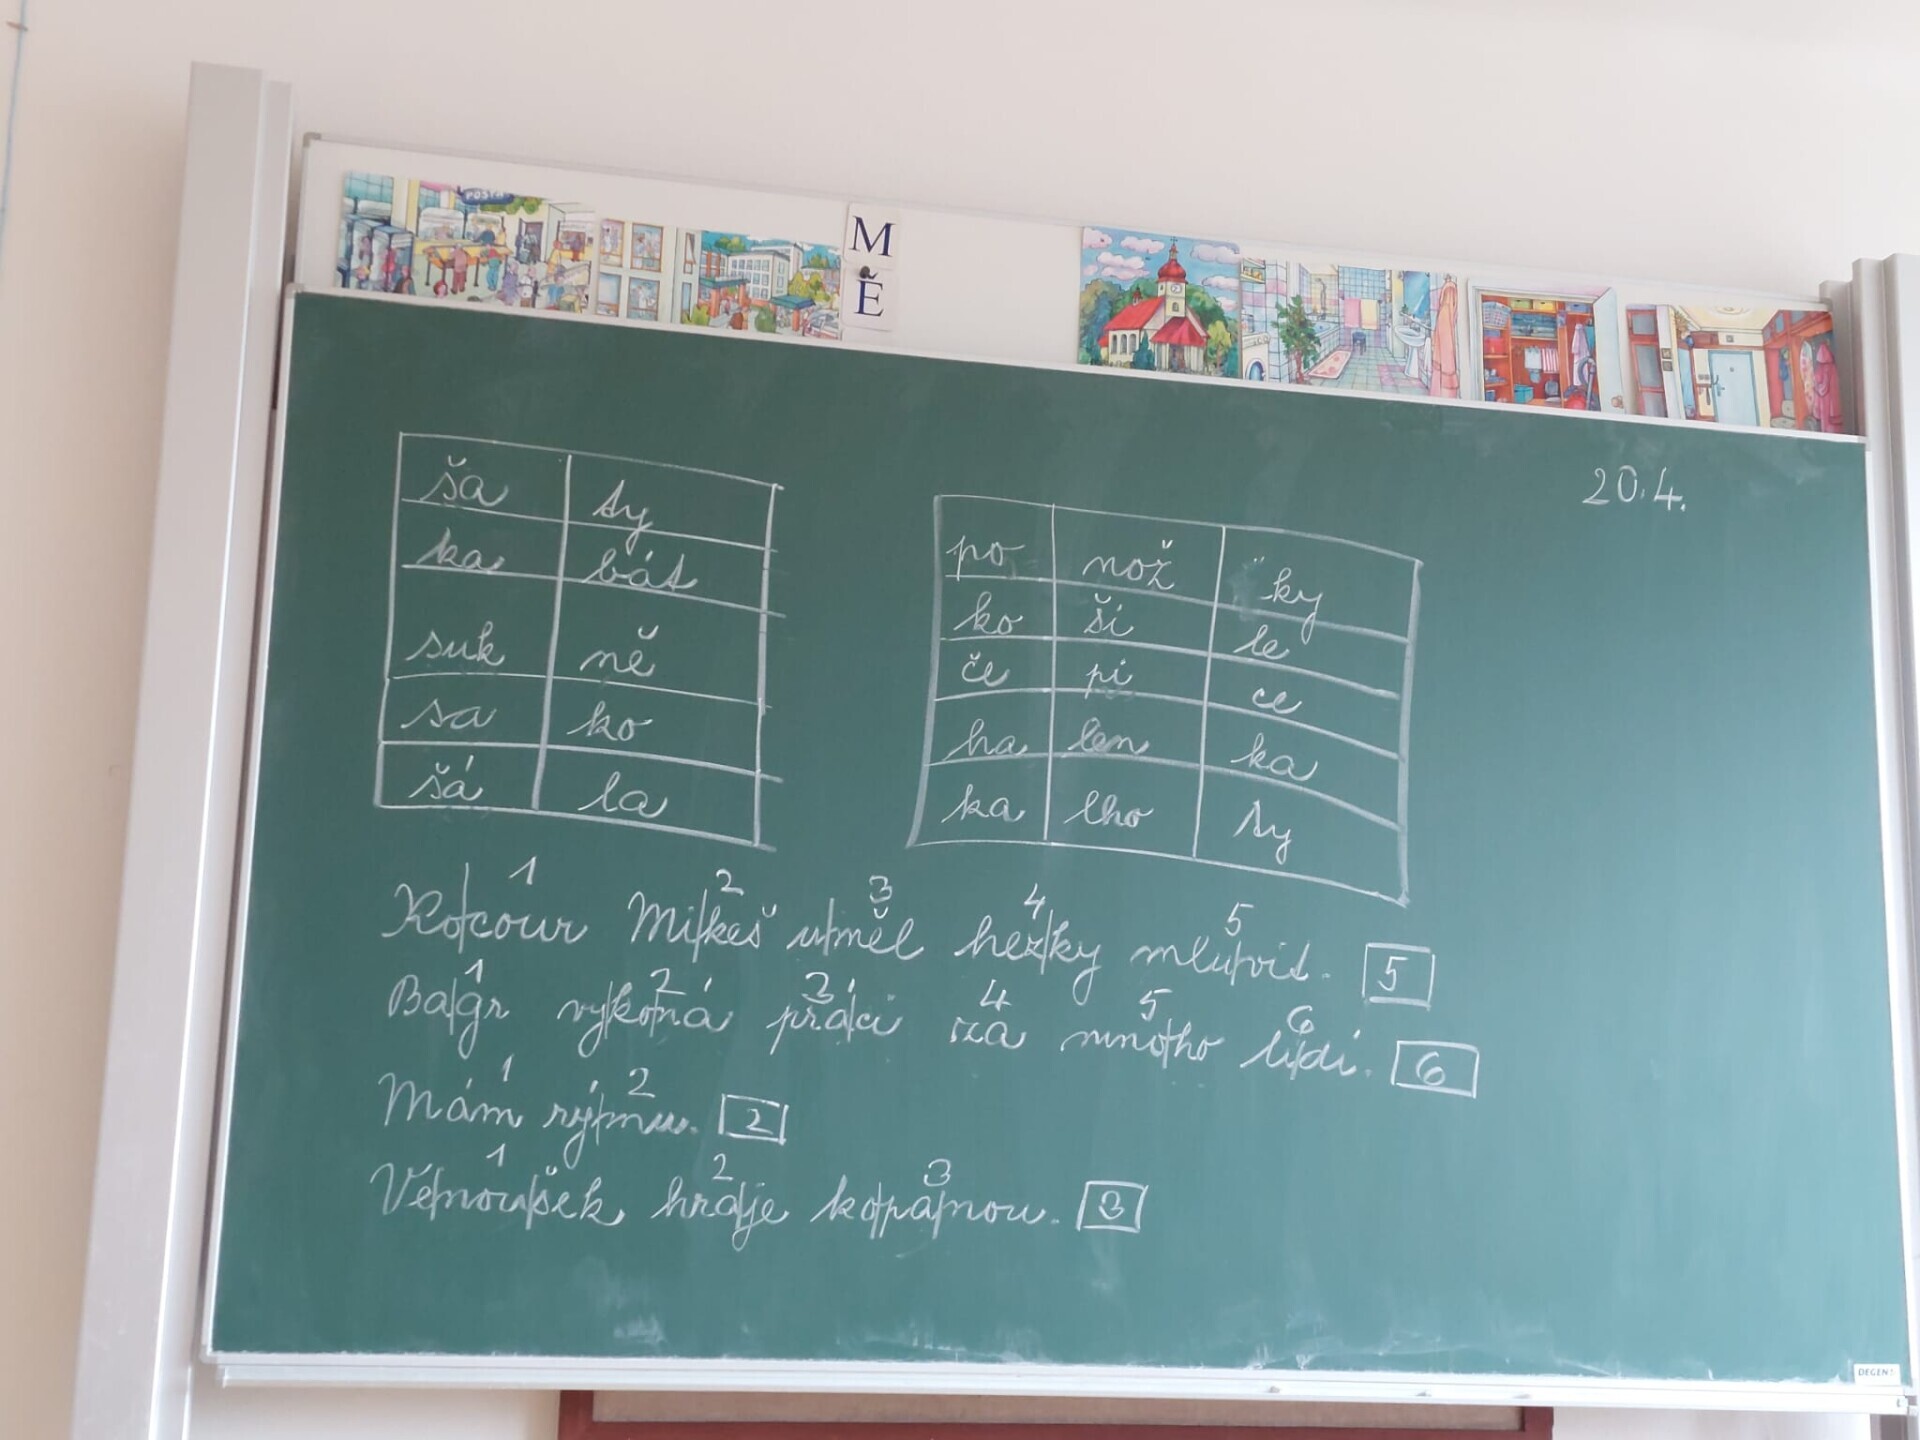 POŠTA
M
Ě
20.4.
ša ty
ka bát
suk ně
sa ko
šá la
po nož ky
ko ši le
če pi ce
ha len ka
ka lho ty
1 2 3 4 5
Ko|cour Mi|keš u|měl hez|ky mlu|vit. 5
1 2 3 4 5 6
Ba|gr vy|ko|ná prá|ci za mno|ho li|dí. 6
1 2
Mám rý|mu. 2
1 2 3
Vě|nou|šek hra|je ko|pa|nou. 3